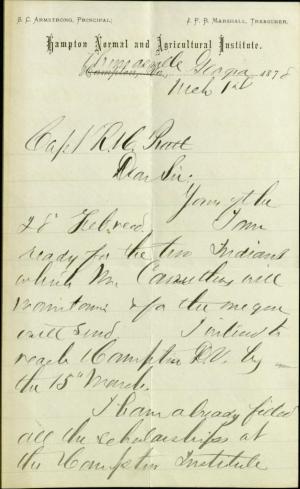 S. C. ARMSTRONG, PRINCIPAL;
J. F. B. MARSHALL, TREASURER.
Hampton Normal and Agricultural Institute.
Thomasville Georgia
Hampton, Va., 1878
Mch 1st
Capt R. H. Pratt
Dear Sir;
Yours of the
28" Feb recd, I am
ready for the two Indians
which Mr Caruthers will
maintain & for the one you
will send I intend to
reach Hampton by
the 15" March.
I have already filled
all the scholarships at
the Hampton Institute